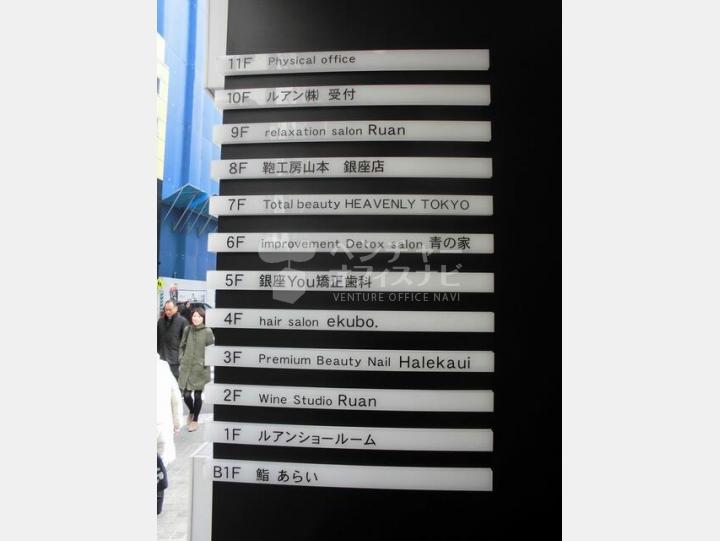 11F Physical office
10F ルアン㈱ 受付
9F relaxation salon Ruan
8F 鞄工房山本 銀座店
7F Total beauty HEAVENLY TOKYO
6F improvement Detox salon 青の家
ベンチャー
オフィスナビ
5F 銀座You矯正歯科
VENTURE OFFICE NAVI
4F hair salon ekubo.
3F Premium Beauty Nail Halekaui
2F Wine Studio Ruan
1F ルアンショールーム
B1F 鮨 あらい